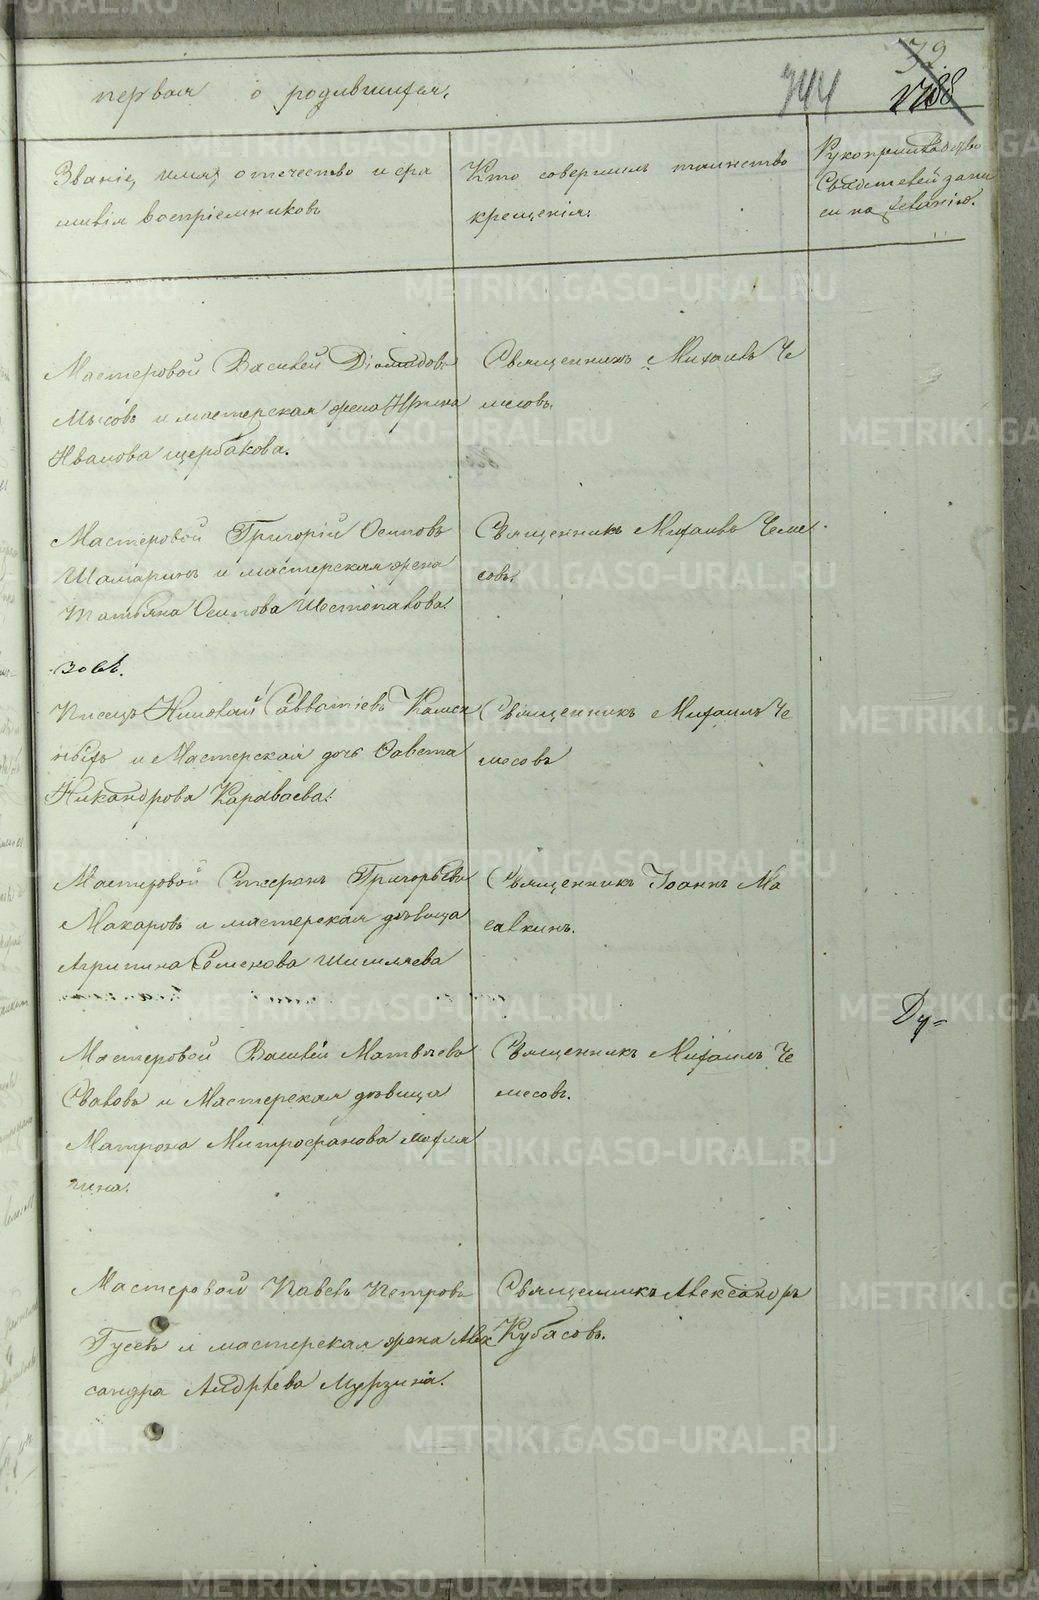 первая о родившихся.
744
72
1788
Званіе, имя, отечество и фа
милія воспріемниковъ
Кто совершилъ таинство
крещенія.
Рукоприкладство
свидетелей запи
си по желанію.
Мастеровой Василей Діомидовъ
Мысовъ и мастерская жена Ирина
Иванова щербакова.
Священникъ Михаилъ Че
месовъ.
Мастеровой Григорій Осиповъ
Шамаринъ и мастерская жена
Татьяна Осипова Шестопалова.
Священникъ Михаилъ Чеме
совъ.
зовъ.
Писецъ Николай Савватіевъ Камен
и Мастерская дочь
Никандрова Караваева.
Священникъ Михаилъ Че
месовъ
Мастеровой Стефанъ Григорьевъ
Макаровъ и мастерская дѣвица
Агрипина Семенова Шишляева
Священникъ Іоаннъ Ма
салкинъ.
Ду=
Мастеровой Василей Матвѣевъ
и Мастерская дѣвица
Матрона Митрофанова
гина.
Священникъ Михаилъ Че
месовъ.
Мастеровой Павелъ Петровъ
Гусевъ и мастерская жена Алек
сандра Андрѣева Мурзина.
Священникъ Александръ
Кубасовъ.
METRIKI.GASO-URAL.RU